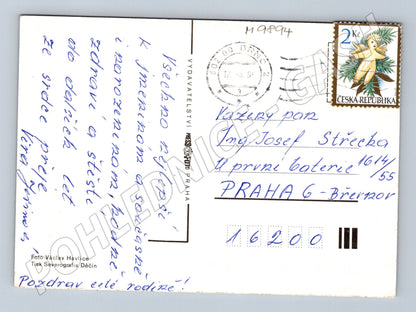 M 9894
Všechno nejlepší
k jmeninám a současně
i narozeninám, hodně
zdraví a štěstí
do dalších let
ze srdce přeje
Pozdrav celé rodině!
Foto Václav Havlice
Tisk Severografia Děčín
VYDAVATELSTVÍ PRAHA
2 Kč
ČESKÁ REPUBLIKA
Vážený pan
Ing Josef Střecha
U první baterie 1614/55
PRAHA 6 - Břevnov
16200
POHLEDNICE-GA